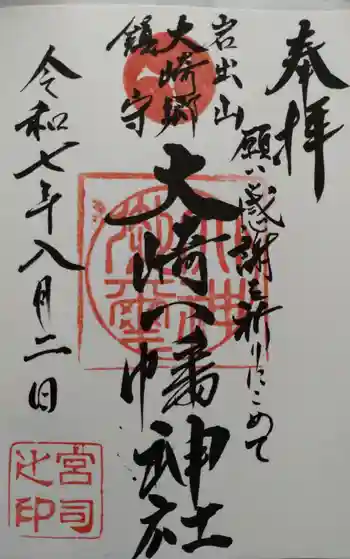 奉拝
願いと感謝を祈りにこめて
岩出山
大崎郷
鎮守
大崎八幡神社
令和七年八月二日
宮司
之印